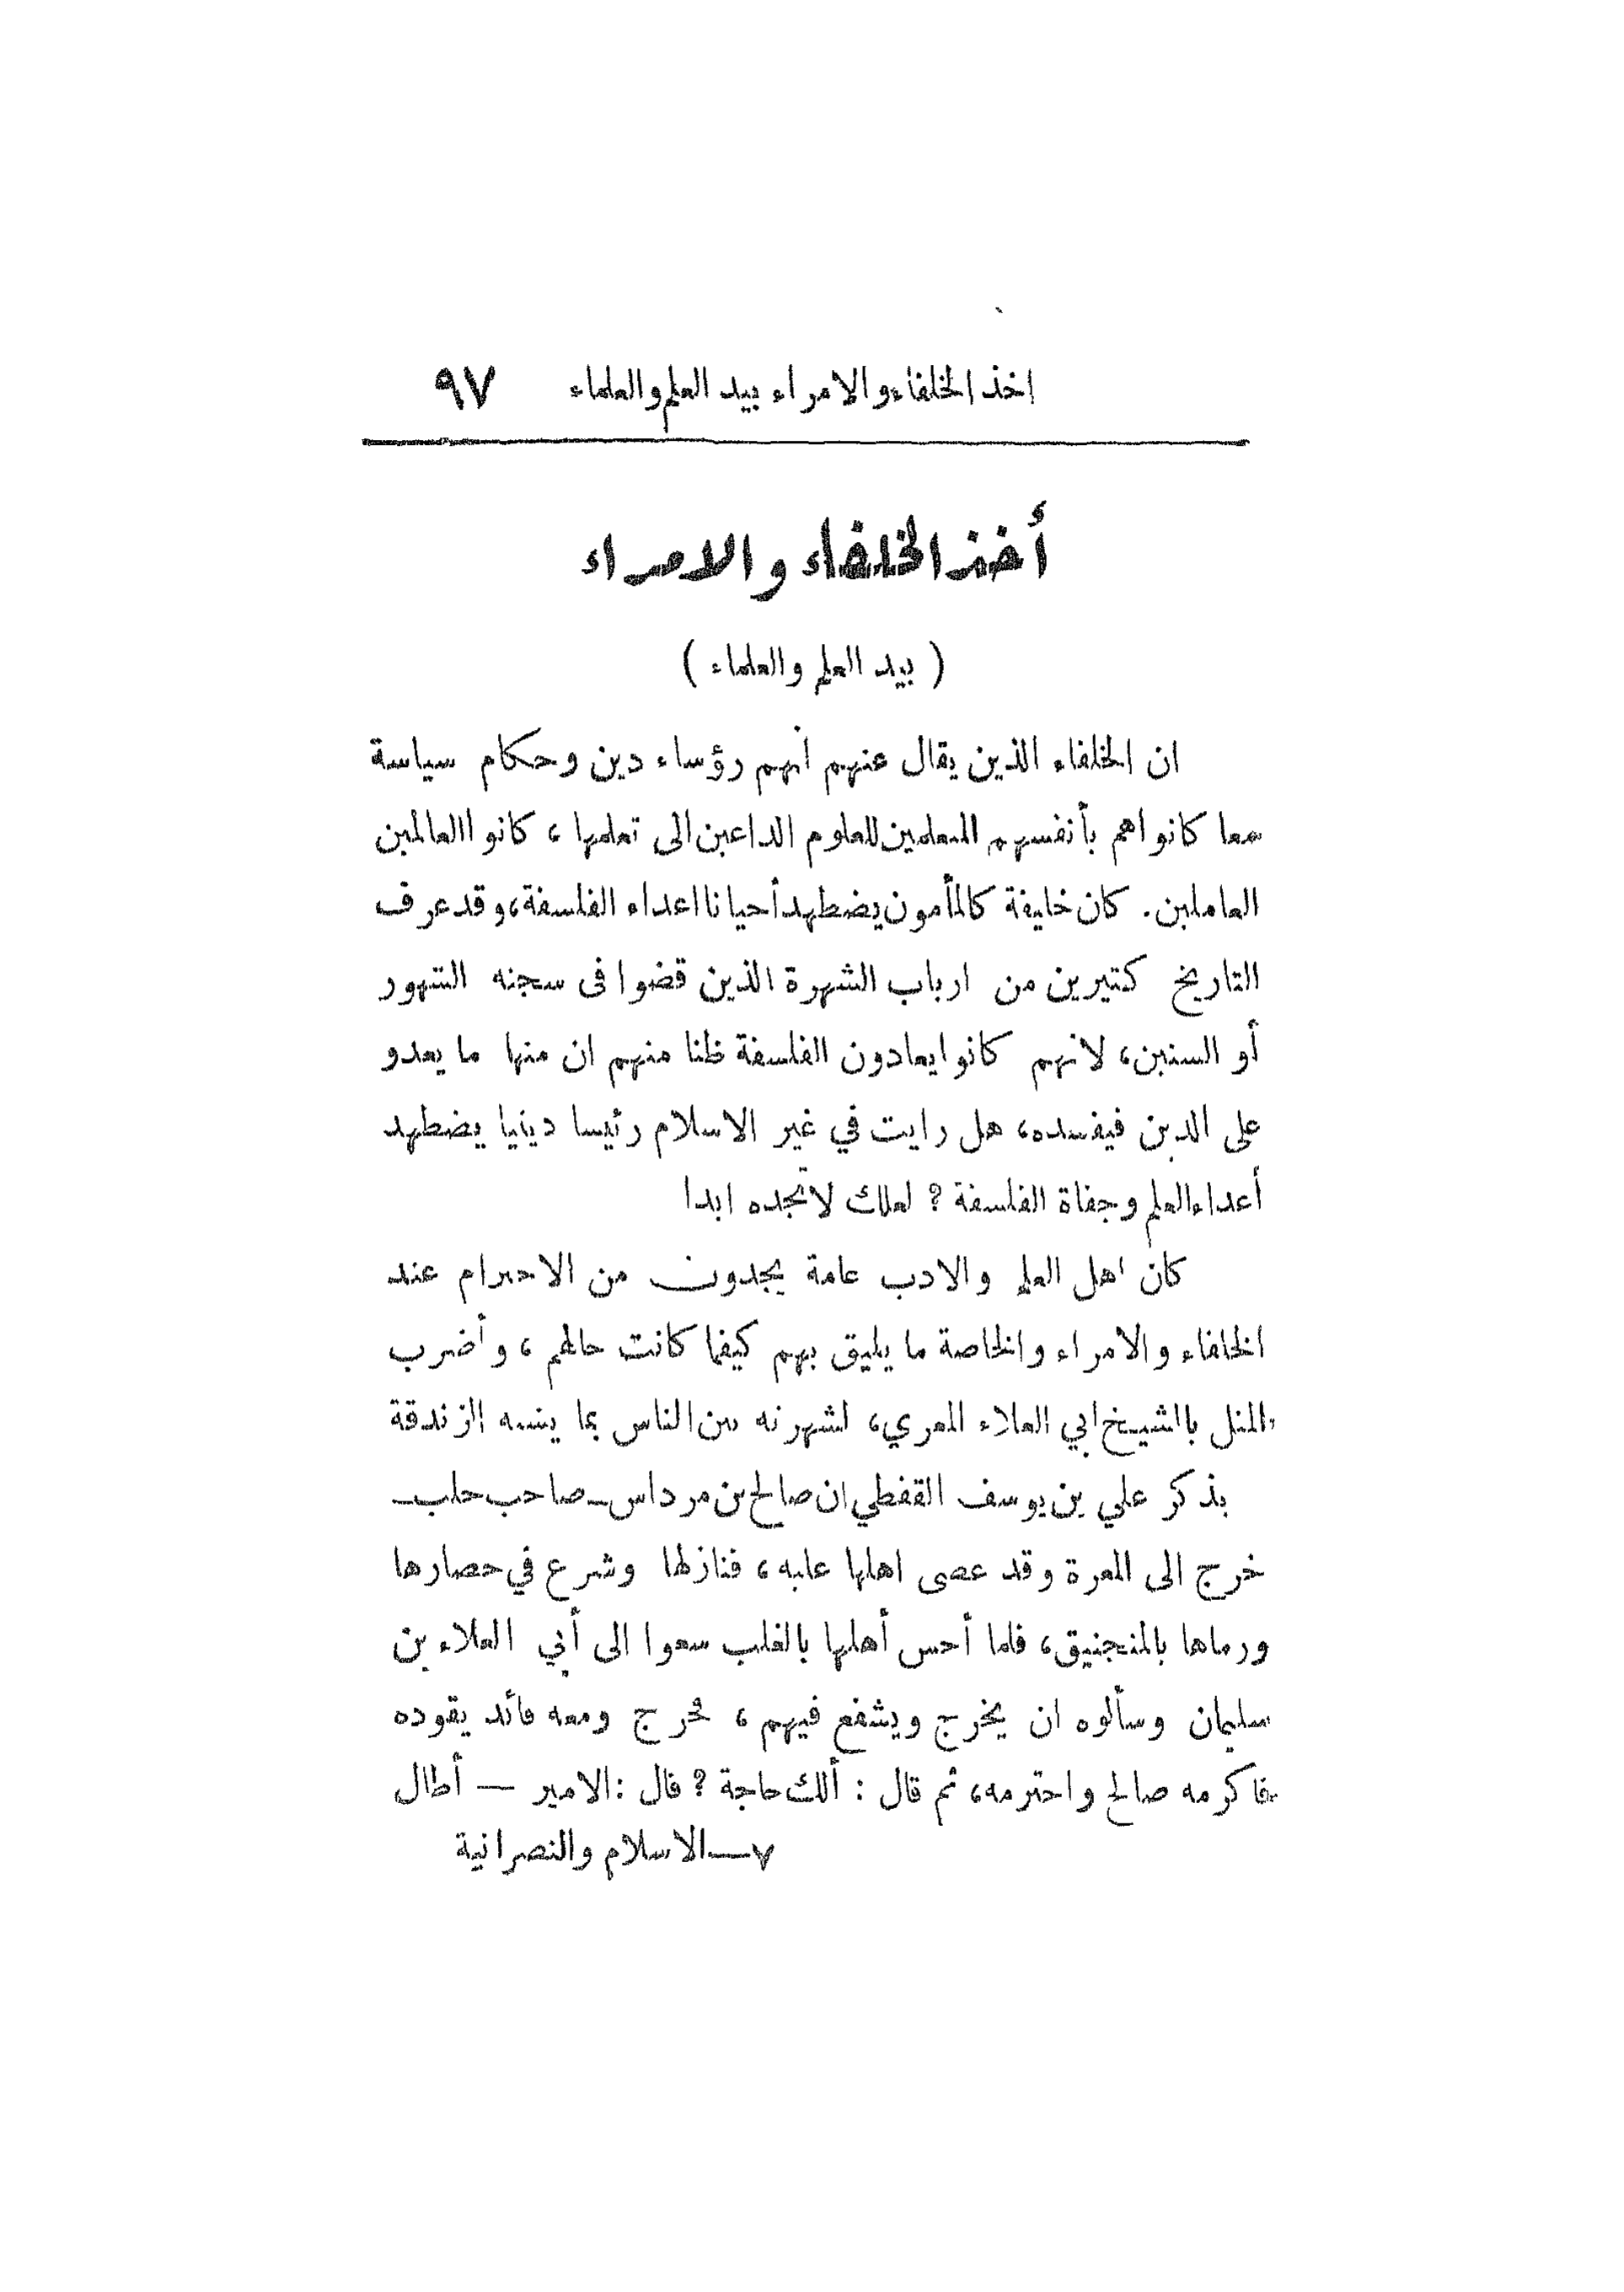 اخذ الخلفاء والامراء بيد العلم والعلماء ٩٧
أخذ الخلفاء والامراء
( بيد العلم والعلماء )
ان الخلفاء الذين يقال عنهم انهم رؤساء دين وحكام سياسة
معا كانوا هم بأنفسهم المتعلمين للعلوم الداعين الى تعلمها ، كانوا العالمين
العاملين . كان خليفة كالمأمون يضطهد أحيانا اعداء الفلسفة ، وقد عرف
التاريخ كثيرين من ارباب الشهرة الذين قضوا في سجنه الشهور
أو السنين ، لانهم كانوا يعادون الفلسفة ظنا منهم ان منها ما يعدو
على الدين فيفسده ، هل رايت في غير الاسلام رئيسا دينيا يضطهد
أعداء العلم وجفاة الفلسفة ? لعلك لا تجده ابدا
كان اهل العلم والادب عامة يجدون من الاحترام عند
الخلفاء والامراء والخاصة ما يليق بهم كيفما كانت حالهم ، وأضرب
المثل بالشيخ ابي العلاء المعري ، لشهرته بين الناس بما يشبه الزندقة
يذكر علي بن يوسف القفطي ان صالح بن مرداس ــ صاحب حلب ــ
خرج الى المعرة وقد عصى اهلها عليه ، فنازلها وشرع في حصارها
ورماها بالمنجنيق ، فلما أحس أهلها بالغلب سعوا الى أبي العلاء بن
سليمان وسألوه ان يخرج ويشفع فيهم ، فخرج ومعه قائد يقوده
فاكرمه صالح واحترمه ، ثم قال : ألك حاجة ? قال : الامير — أطال
٧ — الاسلام والنصرانية